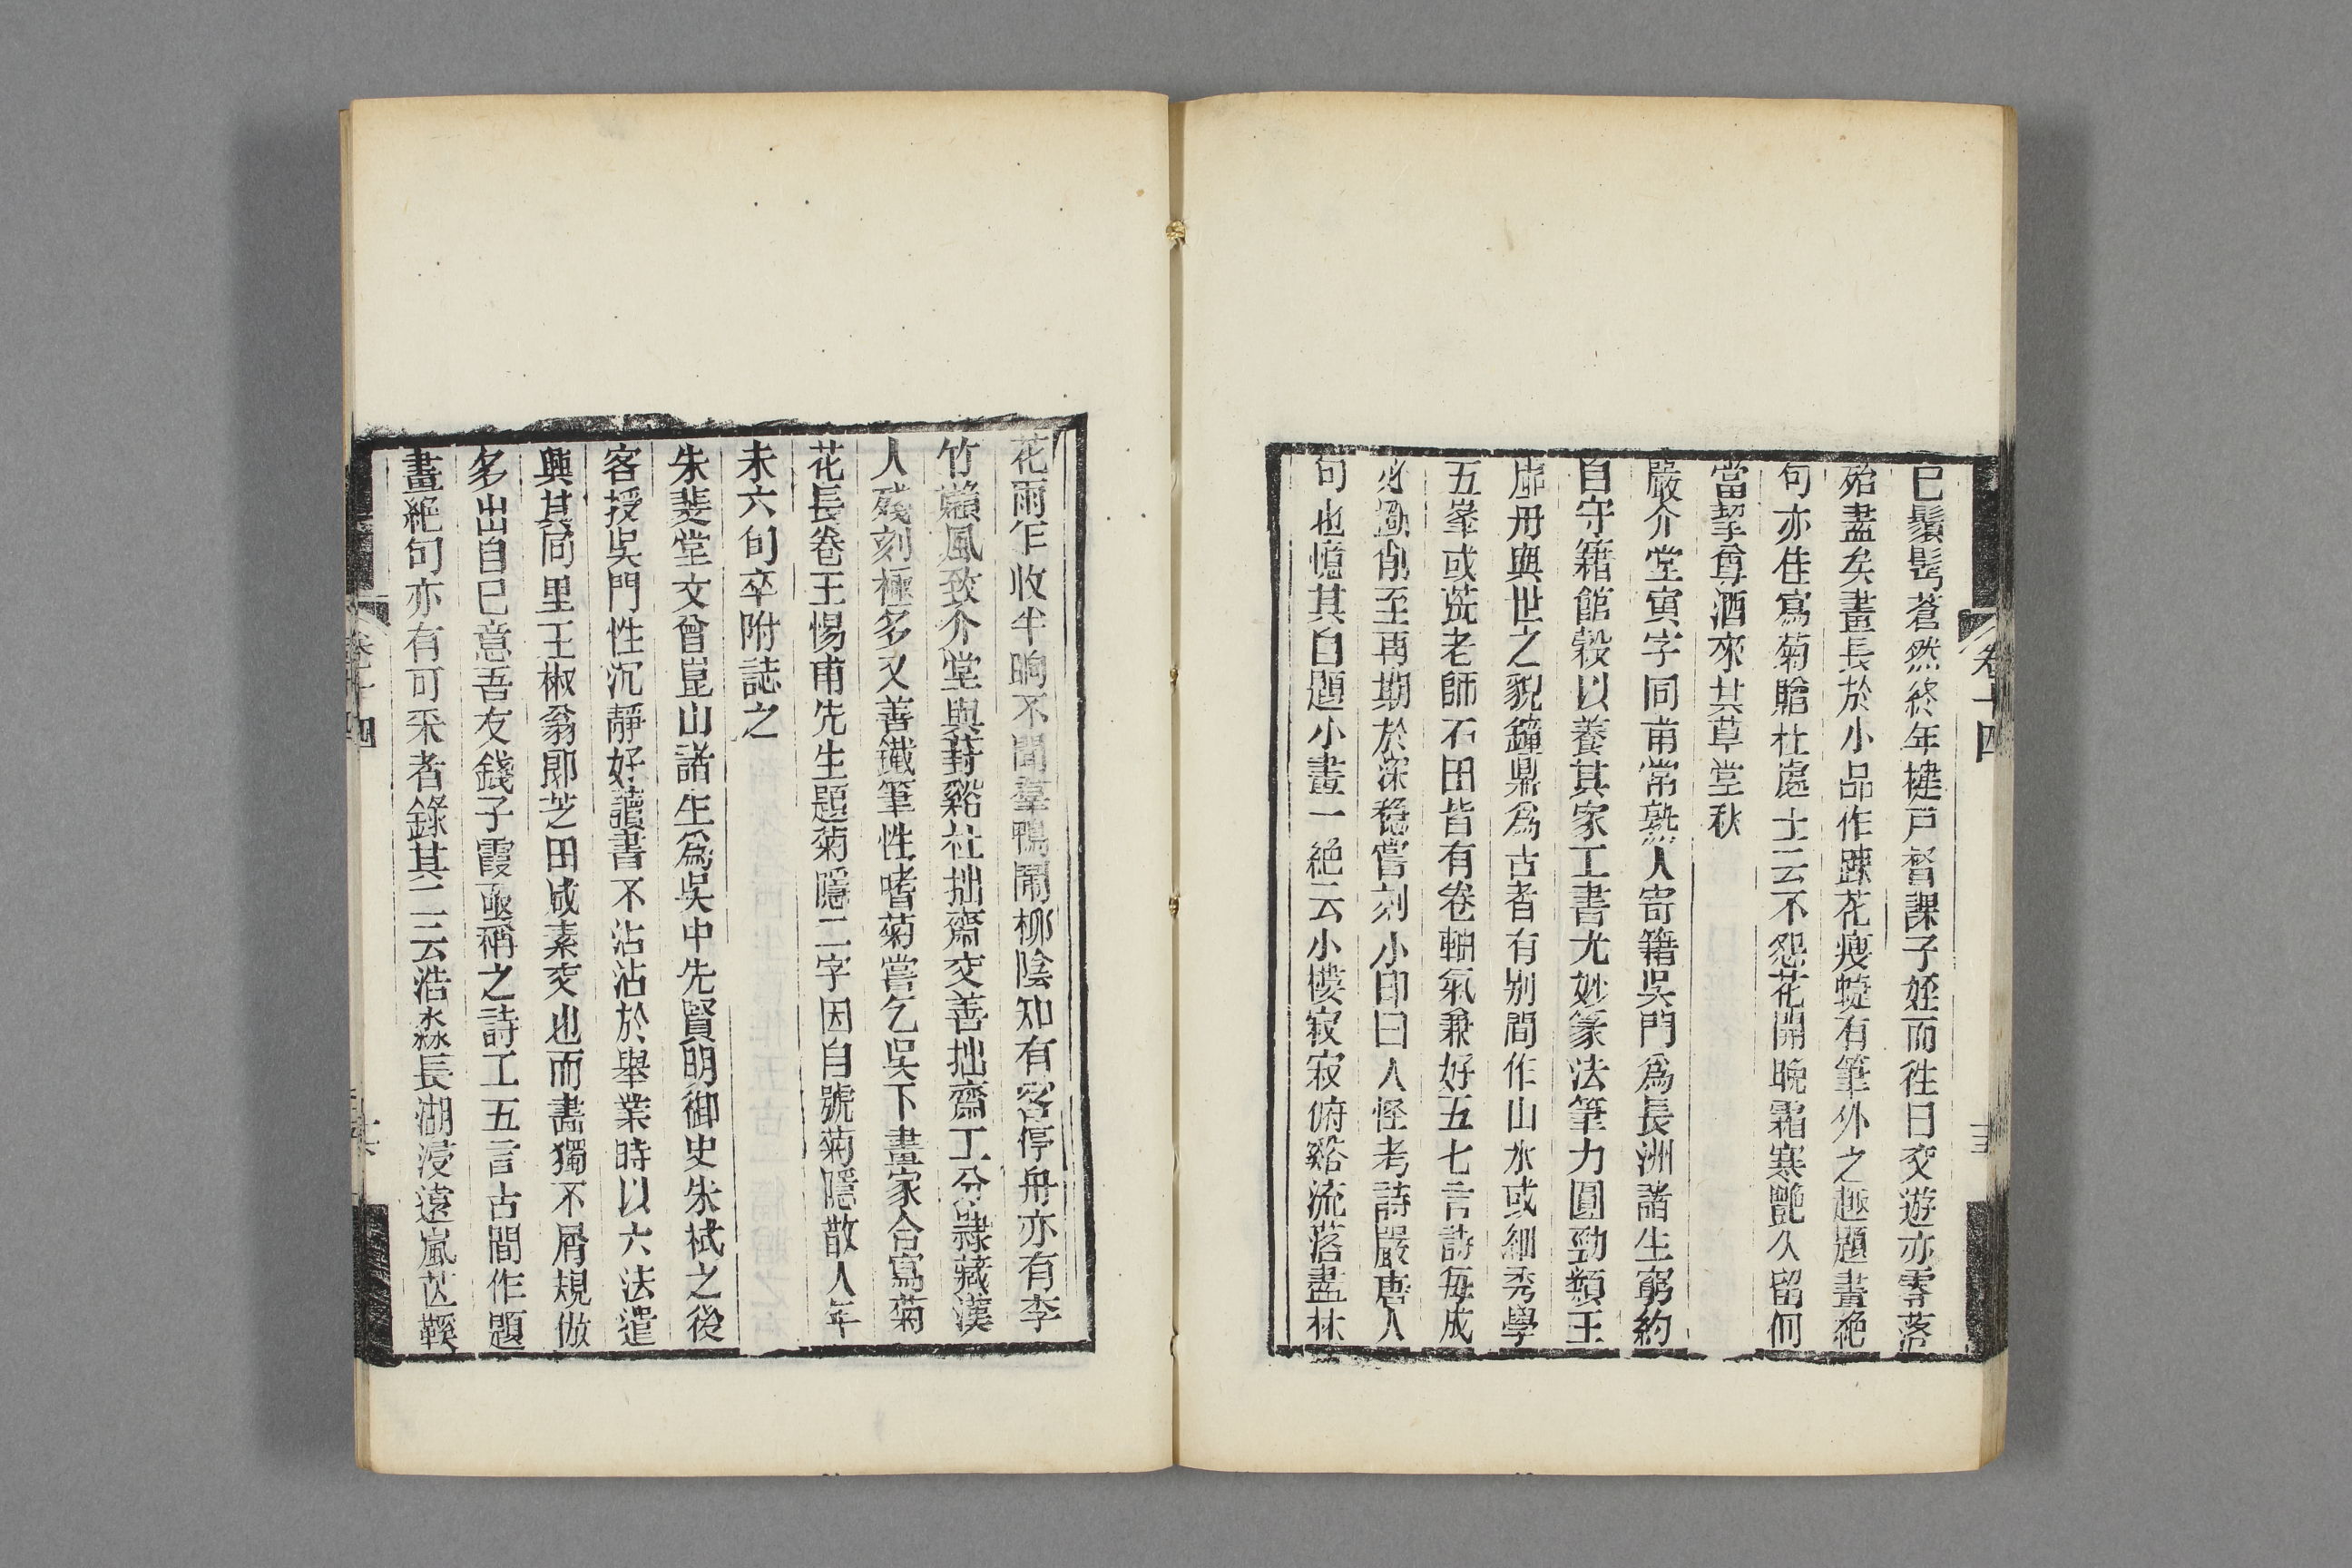 卷十四
已鬚髩蒼然終年揵戸督課子姪而徃日交遊亦零落
殆盡矣畫長於小品作踈花瘦蜨有筆外之趣題畫絶
句亦佳寫菊贈杜處士云不怨花開晩霜寒艶久留何
當挈尊酒來共草堂秋
嚴介堂寅字同甫常熟人寄籍吳門爲長洲諸生窮約
自守籍館榖以養其家工書尤妙篆法筆力圓勁類王
虛舟與世之貌鐘鼎爲古者有别間作山水或細秀學
五峯或蒼老師石田皆有卷軸氣兼好五七言詩每成
必劖削至再期於深穩嘗刻小印曰人怪考詩嚴唐人
句也憶其自題小畫一絶云小樓寂寂俯谿流落盡林
花雨乍收半晌不聞羣鴨鬧柳陰知有客停舟亦有李
竹嬾風致介堂與葑谿杜拙齋交善拙齋工分隸藏漢
人殘刻極多又善鐵筆性嗜菊嘗乞吳下畫家合寫菊
花長卷王惕甫先生題菊隱二字因自號菊隱散人年
未六旬卒附誌之
朱斐堂文曾崑山諸生爲吳中先賢明御史朱栻之後
客授吳門性沉靜好讀書不沾沾於舉業時以六法遣
興其同里王椒翁即芝田咸素交也而畵獨不屑規倣
多出自已意吾友錢子霞亟稱之詩工五言古間作題
畫絶句亦有可采者錄其二云浩淼長湖浸遠嵐芒鞵
卷十四